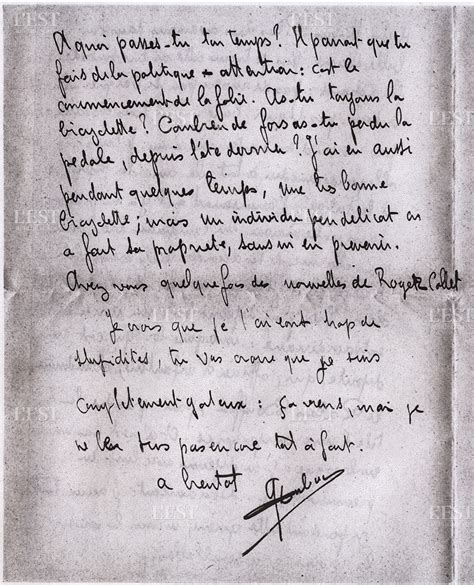 A quoi passes-tu ton temps? Il parait que tu
fais de la politique - attention : c'est le
commencement de la folie. As-tu toujours la
bicyclette? Combien de fois as-tu perdu la
pédale, depuis l'été dernier? J'ai eu aussi
pendant quelques temps, une très bonne
bicyclette; mais un individu peu délicat en
a fait sa propriété, sans m'en prévenir.
Avez vous quelquefois des nouvelles de Roger Collet
Je crois que je t'ai écrit trop de
stupidités, tu vas croire que je suis
complètement gateux : ça viens, mais je
ne le suis pas encore tout à fait.
a bientot
L'EST